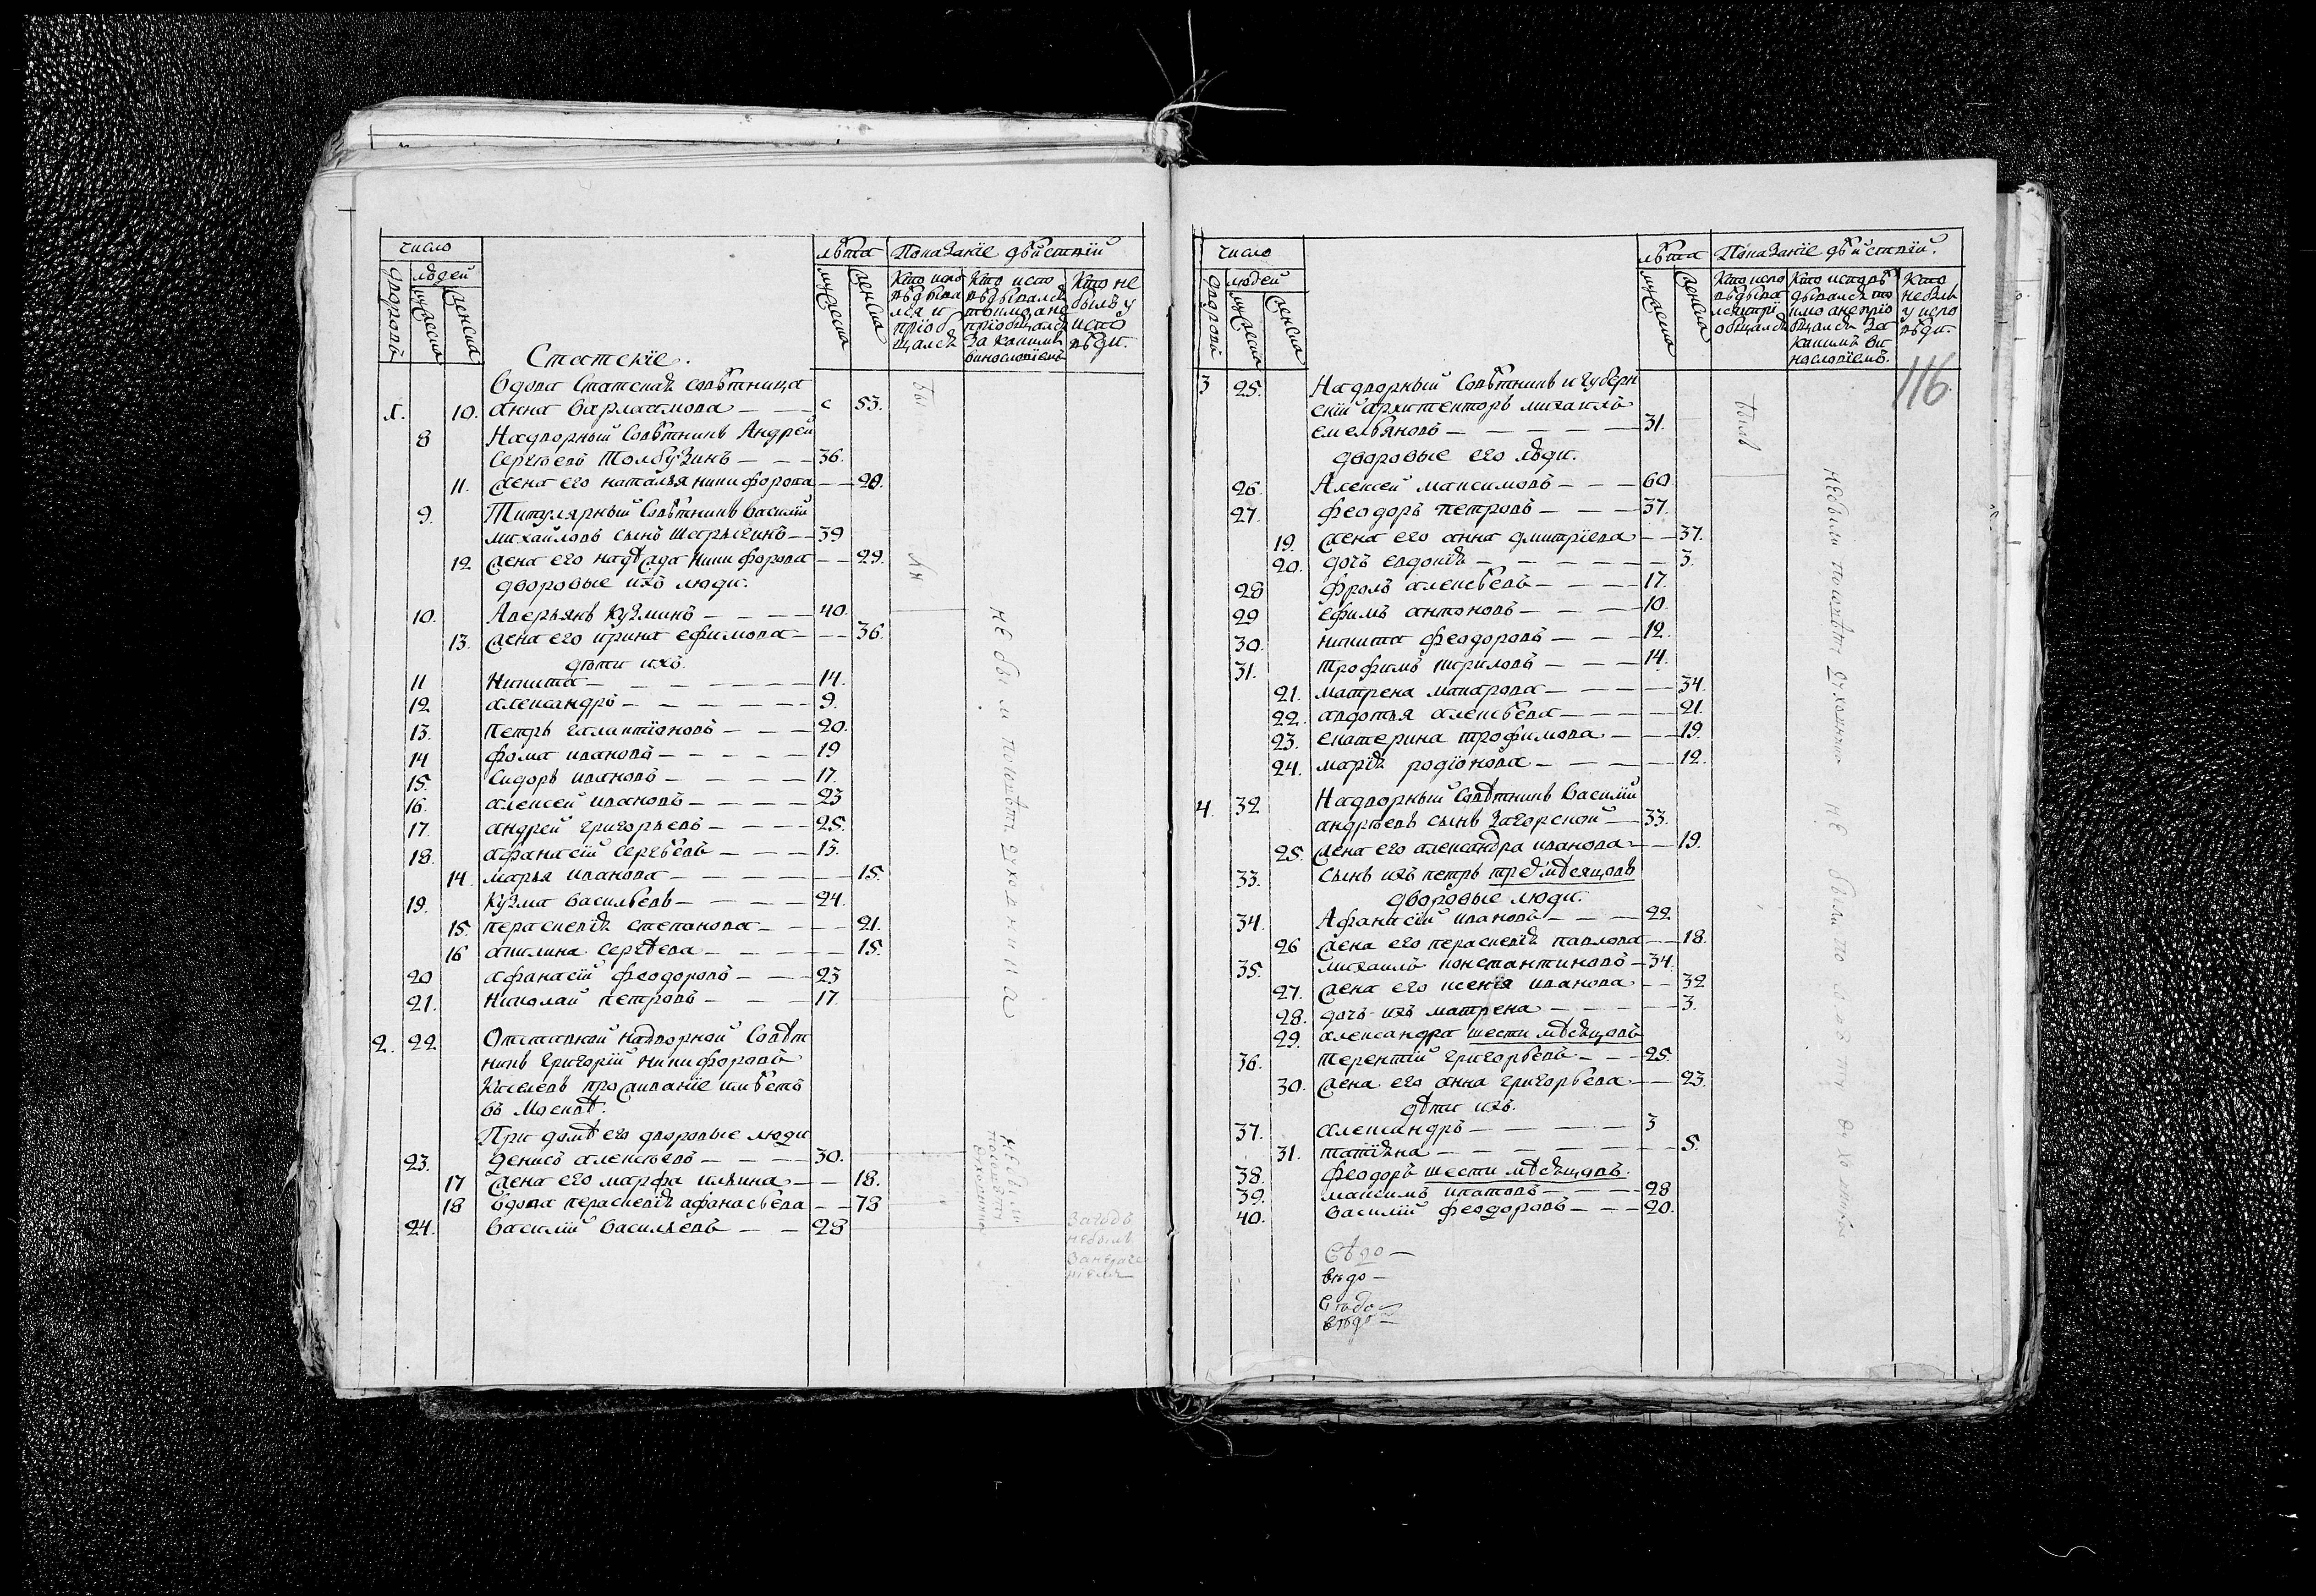 число
лѣта Показанїе дѣйствїй
дворовъ
людей
мужеска
женска
мужеска
женска
Кто испо
вѣдыва
лся и
прїоб
щался
Кто испо
вѣдывался
токмо, а не
прїобщался
за какимъ
винословїемъ
Кто не
былъ у
испо
вѣди.
Статскїе.
Вдова Статская совѣтница
1. 10. анна варлаамова — — 53.
8 Надворный Совѣтникъ Андрей
Сергѣевъ Толбузинъ — — — 36.
11. жена его наталья никифорова — — 20.
9. Титулярный Совѣтникъ василїй
михайловъ сынъ — 39
12 жена его надѣжда никифорова — — 29.
дворовые ихъ люди.
10. Аверьянъ кузминъ — — — 40.
13. жена его ирина ефимова — — — 36.
дѣти ихъ.
11 Никита — — — — — — 14.
12 александръ — — — — — 9.
13. петръ галактїоновъ — — — 20.
14 фома ивановъ — — — — 19
15. Сидоръ ивановъ — — — — 17.
16. алексей ивановъ — — — — 23
17 андрей григорьевъ — — — — 25.
18. афанасїй сергѣевъ — — — 13.
14. марья иванова — — — — — 15.
19. Кузма васильевъ — — — — 24.
15. пераскевїя степанова — — — — 21.
16 акилина сергѣева — — — — — 15.
20 афанасїй феодоровъ — — — 23
21. николай петровъ — — — 17.
2. 22 Отставной надворной Совѣт
никъ григорїй никифоровъ
Киселевъ проживанїе имѣетъ
въ Москвѣ.
При домѣ его дворовые люди
23. денисъ алексѣевъ — — — 30.
17 жена его марфа ильина — — 18.
18 вдова пераскевїя афанасьева — — 73
24. василїй васильевъ — — 28
бы ли
не были по навѣту духовника
не были
духовника
За
не былъ
число
лѣта Показанїе дѣйствїй.
дворовъ
людей
мужеска
женска
мужеска
женска
Кто испо
вѣдыва
лся и прї
общался
Кто исповѣ
дывался то
кмо а не прїо
бщался за
какимъ ви
нословїемъ.
Кто
не былъ
у испо
вѣди.
116
3 25. Надворный Совѣтникъ и губерн
скїй архитекторъ михаилъ
емельяновъ — — — — — 31.
дворовые его люди.
26. Алексей максимовъ — — — 60
27. феодоръ петровъ — — — 37.
19. жена его анна дмитрїева — — 37.
20. дочь евдокїя — — — — — 3.
28 фролъ алексѣевъ — — — — 17.
29 ефимъ антоновъ — — — — 10.
30. никита феодоровъ — — — 12.
31. трофимъ кириловъ — — — 14.
21. матрена макарова — — — — 34.
22. авдотья алексѣева — — — — 21.
23. екатерина трофимова — — — 19.
24. марїя родїонова — — — — 12.
4. 32 Надворный Совѣтникъ василїй
андрѣевъ сынъ загорской — — 33.
25. жена его александра иванова — — 19.
33. сынъ ихъ петръ трехъ мѣсяцовъ
дворовые люди.
34. Афанасїй ивановъ — — — 22
26 жена его пераскевїя павлова — — 18.
35. михаилъ константиновъ — 34.
27. жена его ксенїя иванова — — 32
28. дочь ихъ матрена — — — — 3.
29. александра шести мѣсяцовъ
36. терентїй григорьевъ — — — 25.
30. жена его анна григорьева — — 23.
дѣти ихъ.
37. александръ — — — — — 3
31. татїяна — — — — — — 5.
38. феодоръ шести мѣсяцовъ.
39. максимъ ипатовъ — — — — 28
40. василїй феодоровъ — — — 20.
былъ
не были по навѣту духовника
не были по навѣту духовника